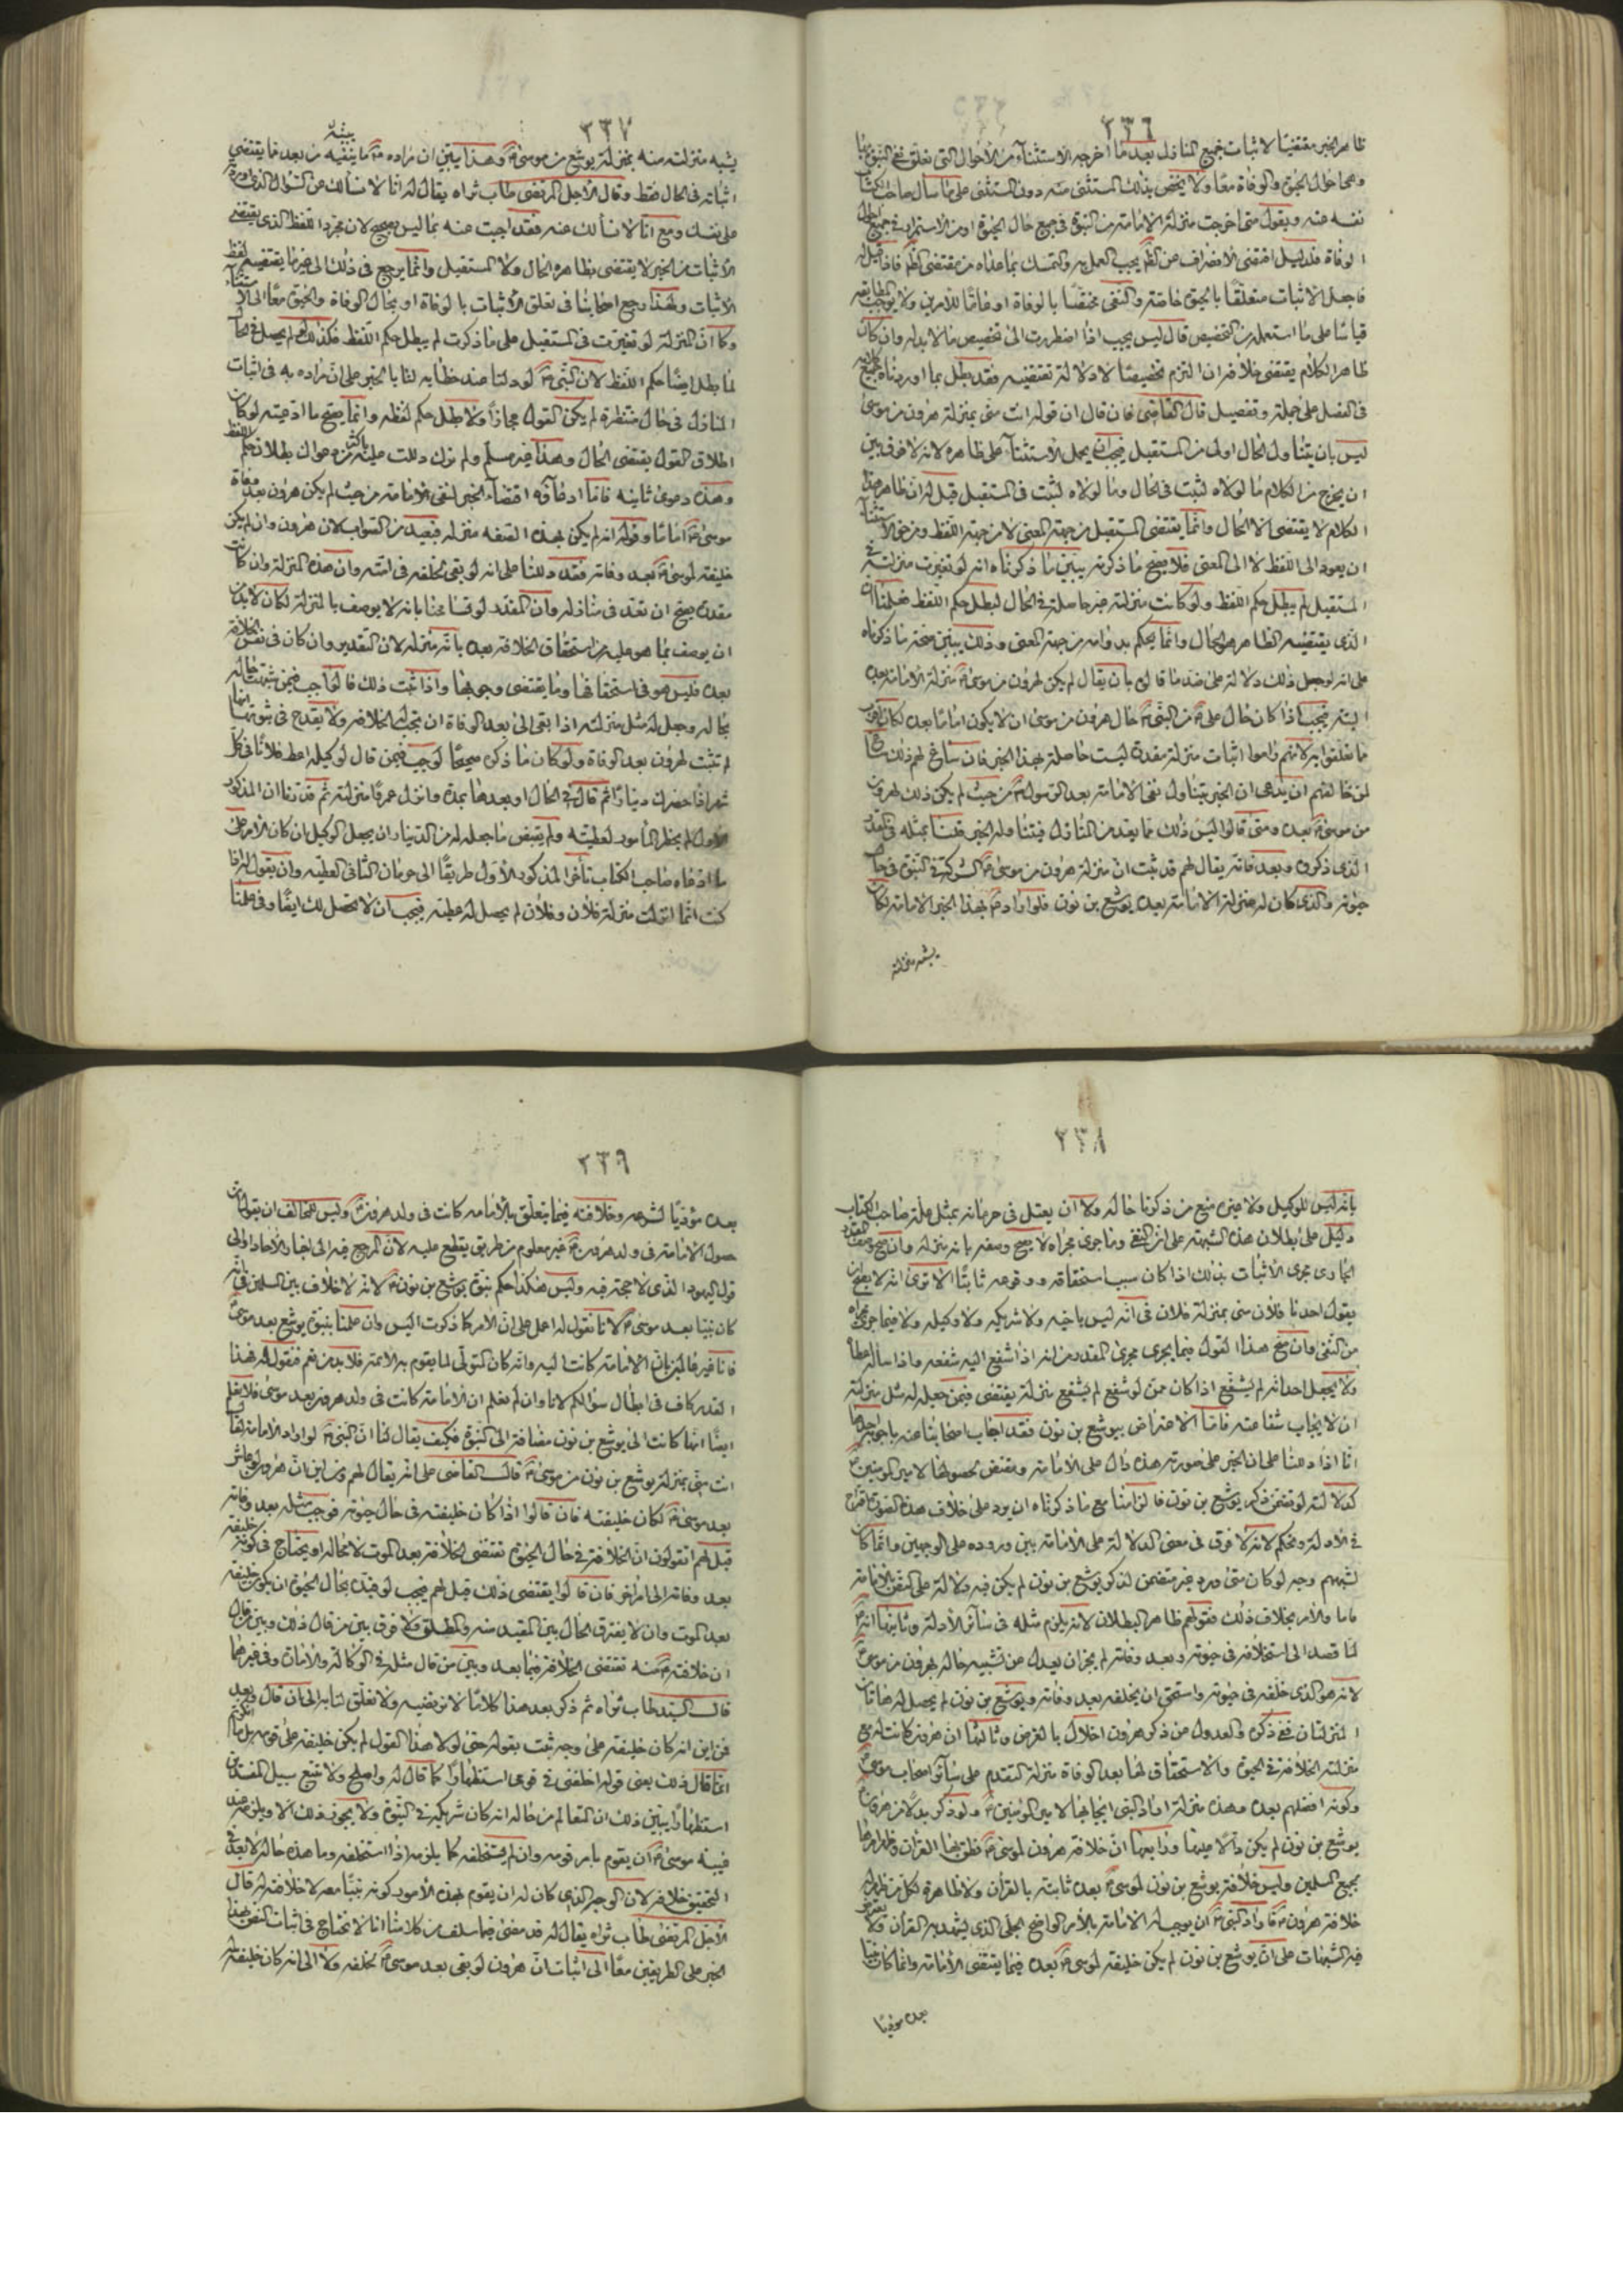 ٢٣٦
ظاهر الخبر مقتضيا لاثبات جميع المنازل بعد ما اخرجه الاستثناء من الاحوال التى تعلق نفى النبوة بها
وهما حال الحيوة والوفاة معا ولا يخص بذلك المستثنى منه دون المستثنى على ما سأل صاحب الكتاب
نفسه عنه ويقول متى اخرجت منزلة الامامة من النبوة فى جميع حال الحيوة او من الاستمرار فى جميع احوال
الوفاة فلدليل اقتضى الانصراف عن الظاهر يجب العمل به والتمسك بما عداه من مقتضى الظاهر فاذا قيل له
فاجعل الاثبات متعلقا بالحيوة خاصة والنفى مختصا بالوفاة او عاما للامرين ولا توجب المطابقة
قياسا على ما استعمله من التخصيص قال ليس يجب اذا اضطررت الى تخصيص ما لا بد له وان كان
ظاهر الكلام يقتضى خلافه ان التزم تخصيصا لا دلالة تقتضيه فقد بطل بما اوردناه جميع كلامه
فى الفصل على جملة وتفصيل قال القاضى فان قال ان قوله انت منى بمنزلة هرون من موسى
ليس بان يتناول الحال اولى من المستقبل فيجب ان يحمل الاستثناء على ظاهره لانه لا فرق بين
ان يخرج من الكلام ما لولاه لثبت فى الحال وما لولاه لثبت فى المستقبل قيل له ان ظاهر هذا
الكلام لا يقتضى الا الحال وانما يقتضى المستقبل من جهة المعنى لا من جهة اللفظ ومن حق الاستثناء
ان يعود الى اللفظ لا الى المعنى فلا يصح ما ذكرته يبين ما ذكرناه انه لو تغيرت منزلته فى
المستقبل لم يبطل حكم اللفظ ولو كانت منزلته غير حاصلة فى الحال لبطل حكم اللفظ فعلمنا ان
الذى يقتضيه الظاهر هو الحال وانما يحكم بدوامه من جهة المعنى وذلك يبين صحة ما ذكرناه
على انه لو جعل ذلك دلالة على ضد ما قالوه بان يقال لم يكن لهرون من موسى منزلة الامامة بعده
البتة فيجب اذا كان حال على من النبى حال هرون من موسى ان لا يكون اماما بعده لكان اقرب
ما تعلقوا به لانهم راموا اثبات منزلة مقدرة ليست حاصلة بهذا الخبر فان ساغ لهم ذلك ساغ
لمن خالفهم ان يدعى ان الخبر يتناول نفى الامامة بعد الرسول من حيث لم يكن ذلك لهرون
من موسى بعده ومتى قالوا ليس ذلك مما يعد من المنازل فيتناوله الخبر قلنا بمثله فى المقدر
الذى ذكروه وبعد فانه يقال لهم قد ثبت ان منزلة هرون من موسى الشركة فى النبوة فى حال
حيوته والذى كان له منزلة الامامة بعده يوشع بن نون فلو اراد بهذا الخبر الامامة لكان
يشبه منزلته
٢٣٧
يشبه منزلته منه بمنزلة يوشع من موسى وهذا يبين ان مراده ما ينفيه من بعد ما يقتضى
اثباته فى الحال فقط وقال الاجل المرتضى طاب ثراه يقال له انا لا نسألك عن السؤال الذى اوردته
على نفسك ومع انا لا نسألك عنه فقد اجبت عنه بما ليس بصحيح لان مجرد اللفظ الذى يقتضى
الاثبات من الخبر لا يقتضى بظاهره الحال ولا المستقبل وانما يرجع فى ذلك الى غير ما يقتضيه لفظ
الاثبات ولهذا رجع اصحابنا فى تعلق الاثبات بالوفاة او بحال الوفاة والحيوة معا الى الاستثناء
وكما ان المنزلة لو تغيرت فى المستقبل على ما ذكرت لم يبطل حكم اللفظ فكذلك لو لم يحصل فى الحال
لما بطل ايضا حكم اللفظ لان النبى لو دلنا عند خطابه لنا بالخبر على ان مراده به فى اثبات
المنازل فى حال منتظرة لم يكن القول مجازا ولا بطل حكم لفظه وانما يصح ما ادعيته لو كان
اطلاق القول يقتضى الحال وهذا غير مسلم ولم نرك دللت عليه باكثر من دعواك بطلان حكم اللفظ
وهذه دعوى ثانية فاما ادعاؤه اقتضاء الخبر لنفى الامامة من حيث لم يكن هرون بعد وفاة
موسى اماما وقوله انه لم يكن بهذه الصفة منزلة فبعيد من الصواب لان هرون وان لم يكن
خليفة لموسى بعد وفاته فقد دللنا على انه لو بقى لخلفه فى امته وان هذه المنزلة وان كانت
مقدرة يصح ان تعد فى منازله وان المقدر لو تسامحنا بانه لا يوصف بالمنزلة لكان لا بد من
ان يوصف بما هو عليه من استحقاق الخلافة بعده بانه منزلة لان التقدير وان كان فى نفس الخلافة
بعده فليس هو فى استحقاقها وما يقتضى وجوبها واذا ثبت ذلك فالواجب فيمن شبهت حاله
بحاله وجعل له مثل منزلته اذا بقى الى بعد الوفاة ان تجب له الخلافة ولا يقدح فى ثبوتها انها
لم تثبت لهرون بعد الوفاة ولو كان ما ذكره صحيحا لوجب فيمن قال لوكيله اعط فلانا فى كل
شهر اذا حضرك دينارا ثم قال فى الحال او بعدها بمدة وانزل عمرا منزلته ثم قدرنا ان المذكور
الاول لم يحضر المأمور لعطيته ولم يقبض ما جعله له من الدينار ان يجعل الوكيل ان كان الامر على
ما ادعاه صاحب الكتاب تأخر المذكور الاول طريقا الى حرمان الثانى العطية وان يقول له اذا
كنت انما انزلت منزلة فلان وفلان لم يحصل له عطية فيجب ان لا تحصل لك ايضا وفى علمنا
٢٣٨
بانه ليس للوكيل ولا غيره منع من ذكرنا حاله ولا ان يعتل فى حرمانه بمثل علة صاحب الكتاب
دليل على بطلان هذه الشبهة على ان النفى وما جرى مجراه لا يصح وصفه بانه منزلة وان صح وصف المقدر
الجارى مجرى الاثبات بذلك اذا كان سبب استحقاقه ووقوعه ثابتا الا ترى انه لا يصح ان
يقول احدنا فلان منى بمنزلة فلان فى انه ليس باخيه ولا شريكه ولا وكيله ولا فيما جرى مجراه
من النفى وان صح هذا القول فيما يجرى مجرى المقدر من انه اذا شفع اليه شفعه واذا سأله اعطاه
ولا يجعل احد انه لم يشفع اذا كان ممن لو شفع لم يشفع منزلة يقتضى فيمن جعل له مثل منزلته
ان لا يجاب شفاعته فاما الاعتراض بيوشع بن نون فقد اجاب اصحابنا عنه باجوبة احدها
انا اذا دللنا على ان الخبر على صورته هذه دال على الامامة ومقتض لحصولها لامير المؤمنين
كدلالته لو تضمن ذكر يوشع بن نون فالزامنا مع ما ذكرناه ان يرد على خلاف هذه الصورة اقتراح
فى الادلة وتحكم لانه لا فرق فى معنى الدلالة على الامامة بين وروده على الوجهين وانما كان
لشبهتهم وجه لو كان متى ورد غير متضمن لذكر يوشع بن نون لم يكن فيه دلالة على النص بالامامة
فاما والامر بخلاف ذلك فقولهم ظاهر البطلان لانه يلزم مثله فى سائر الادلة وثانيها انه
لما قصد الى استخلافه فى حيوته وبعد وفاته لم يجز ان يعدل عن تشبيه حاله بهرون من موسى
لانه هو الذى خلفه فى حيوته واستحق ان يخلفه بعد وفاته ويوشع بن نون لم يحصل له هاتان
المنزلتان ففى ذكره والعدول عن ذكر هرون اخلال بالغرض وثالثها ان هرون كانت له مع
منزلة الخلافة فى الحيوة والاستحقاق لها بعد الوفاة منزلة التقدم على سائر اصحاب موسى
وكونه افضلهم بعده وهذه منزلة اراد النبى ايجابها لامير المؤمنين ولو ذكر بدلا من هرون
يوشع بن نون لم يكن دالا عليها ورابعها ان خلافة هرون لموسى نطق بها القرآن وظهر امرها
لجميع المسلمين وليس خلافة يوشع بن نون لموسى بعده ثابتة بالقرآن ولا ظاهرة لكل من ظهر له
خلافة هرون فاراد النبى ان يوجب له الامامة بالامر الواضح الجلى الذى يشهد به القرآن ولا يعترض
فيه الشبهات على ان يوشع بن نون لم يكن خليفة لموسى بعده فيما يقتضى الامامة وانما كان نبيا
بعده مؤديا
٢٣٩
بعده مؤديا لشرعه وخلافته فيما يتعلق بالامامة كانت فى ولد هرون وليس للمخالف ان يقول ان
حصول الامامة فى ولد هرون غير معلوم من طريق يقطع عليه لان المرجع فيه الى اخبار الآحاد او الى
قول اليهود الذى لا حجة فيه وليس هكذا حكم نبوة يوشع بن نون لانه لا خلاف بين المسلمين فى انه
كان نبيا بعد موسى لانا نقول له اعمل على ان الامر كما ذكرت اليس وان علمنا بنبوة يوشع بعد موسى
فانا غير عالمين بان الامامة كانت اليه وانه كان المتولى لما يقوم به الائمة فلا بد من نعم فنقول له فهذا
القدر كاف فى ابطال سؤالكم لانا وان لم نعلم ان الامامة كانت فى ولد هرون بعد موسى فلا نعلم
ايضا انها كانت الى يوشع بن نون مضافة الى النبوة فكيف يقال لنا ان النبى لو اراد الامامة لقال
انت منى بمنزلة يوشع بن نون من موسى قال القاضى على انه يقال لهم ومن اين ان هرون لو عاش
بعد موسى لكان خليفته فان قالوا اذا كان خليفته فى حال حيوته فوجب مثله بعد وفاته
قيل لهم اتقولون ان الخلافة فى حال الحيوة تقتضى الخلافة بعد الموت لا محالة او يحتاج فى كونه خليفة
بعد وفاته الى امر آخر فان قالوا يقتضى ذلك قيل لهم فيجب لو قيده بحال الحيوة ان يكون خليفة
بعد الموت وان لا يفترق الحال بين المقيد منه والمطلق ولا فرق بين من قال ذلك وبين من قال
ان خلافته منه تقتضى الخلافة فيما بعد وبين من قال مثله فى الوكالة والامارة وفى غيرهما
قال السيد طاب ثراه ثم ذكر بعد هذا كلاما لا نرتضيه ولا نتعلق لنا به الى ان قال وبعد
فمن اين انه كان خليفة على وجه ثبت بقوله حتى لولا هذا القول لم يكن خليفة على قومه بل ما انكرتم انه
انما قال ذلك يعنى قوله اخلفنى فى قومى استظهارا كما قال له واصلح ولا تتبع سبيل المفسدين
استظهارا يبين ذلك ان المتعالم من حاله انه كان شريكه فى النبوة ولا يجوز ذلك الا ويلزمه عند
غيبة موسى ان يقوم بامر قومه وان لم يستخلفه كما يلزمه اذا استخلفه وما هذه حاله لا يعد فى
التحقيق خلافة لان الوجه الذى كان له ان يقوم بهذه الامور كونه نبيا معه لا خلافته له قال
الاجل المرتضى طاب ثراه يقال له قد مضى فيما سلف من كلامنا انا لا نحتاج فى اثبات النص بهذا
الخبر على الطريقين معا الى اثبات ان هرون لو بقى بعد موسى لخلفه ولا الى انه كان خليفة له